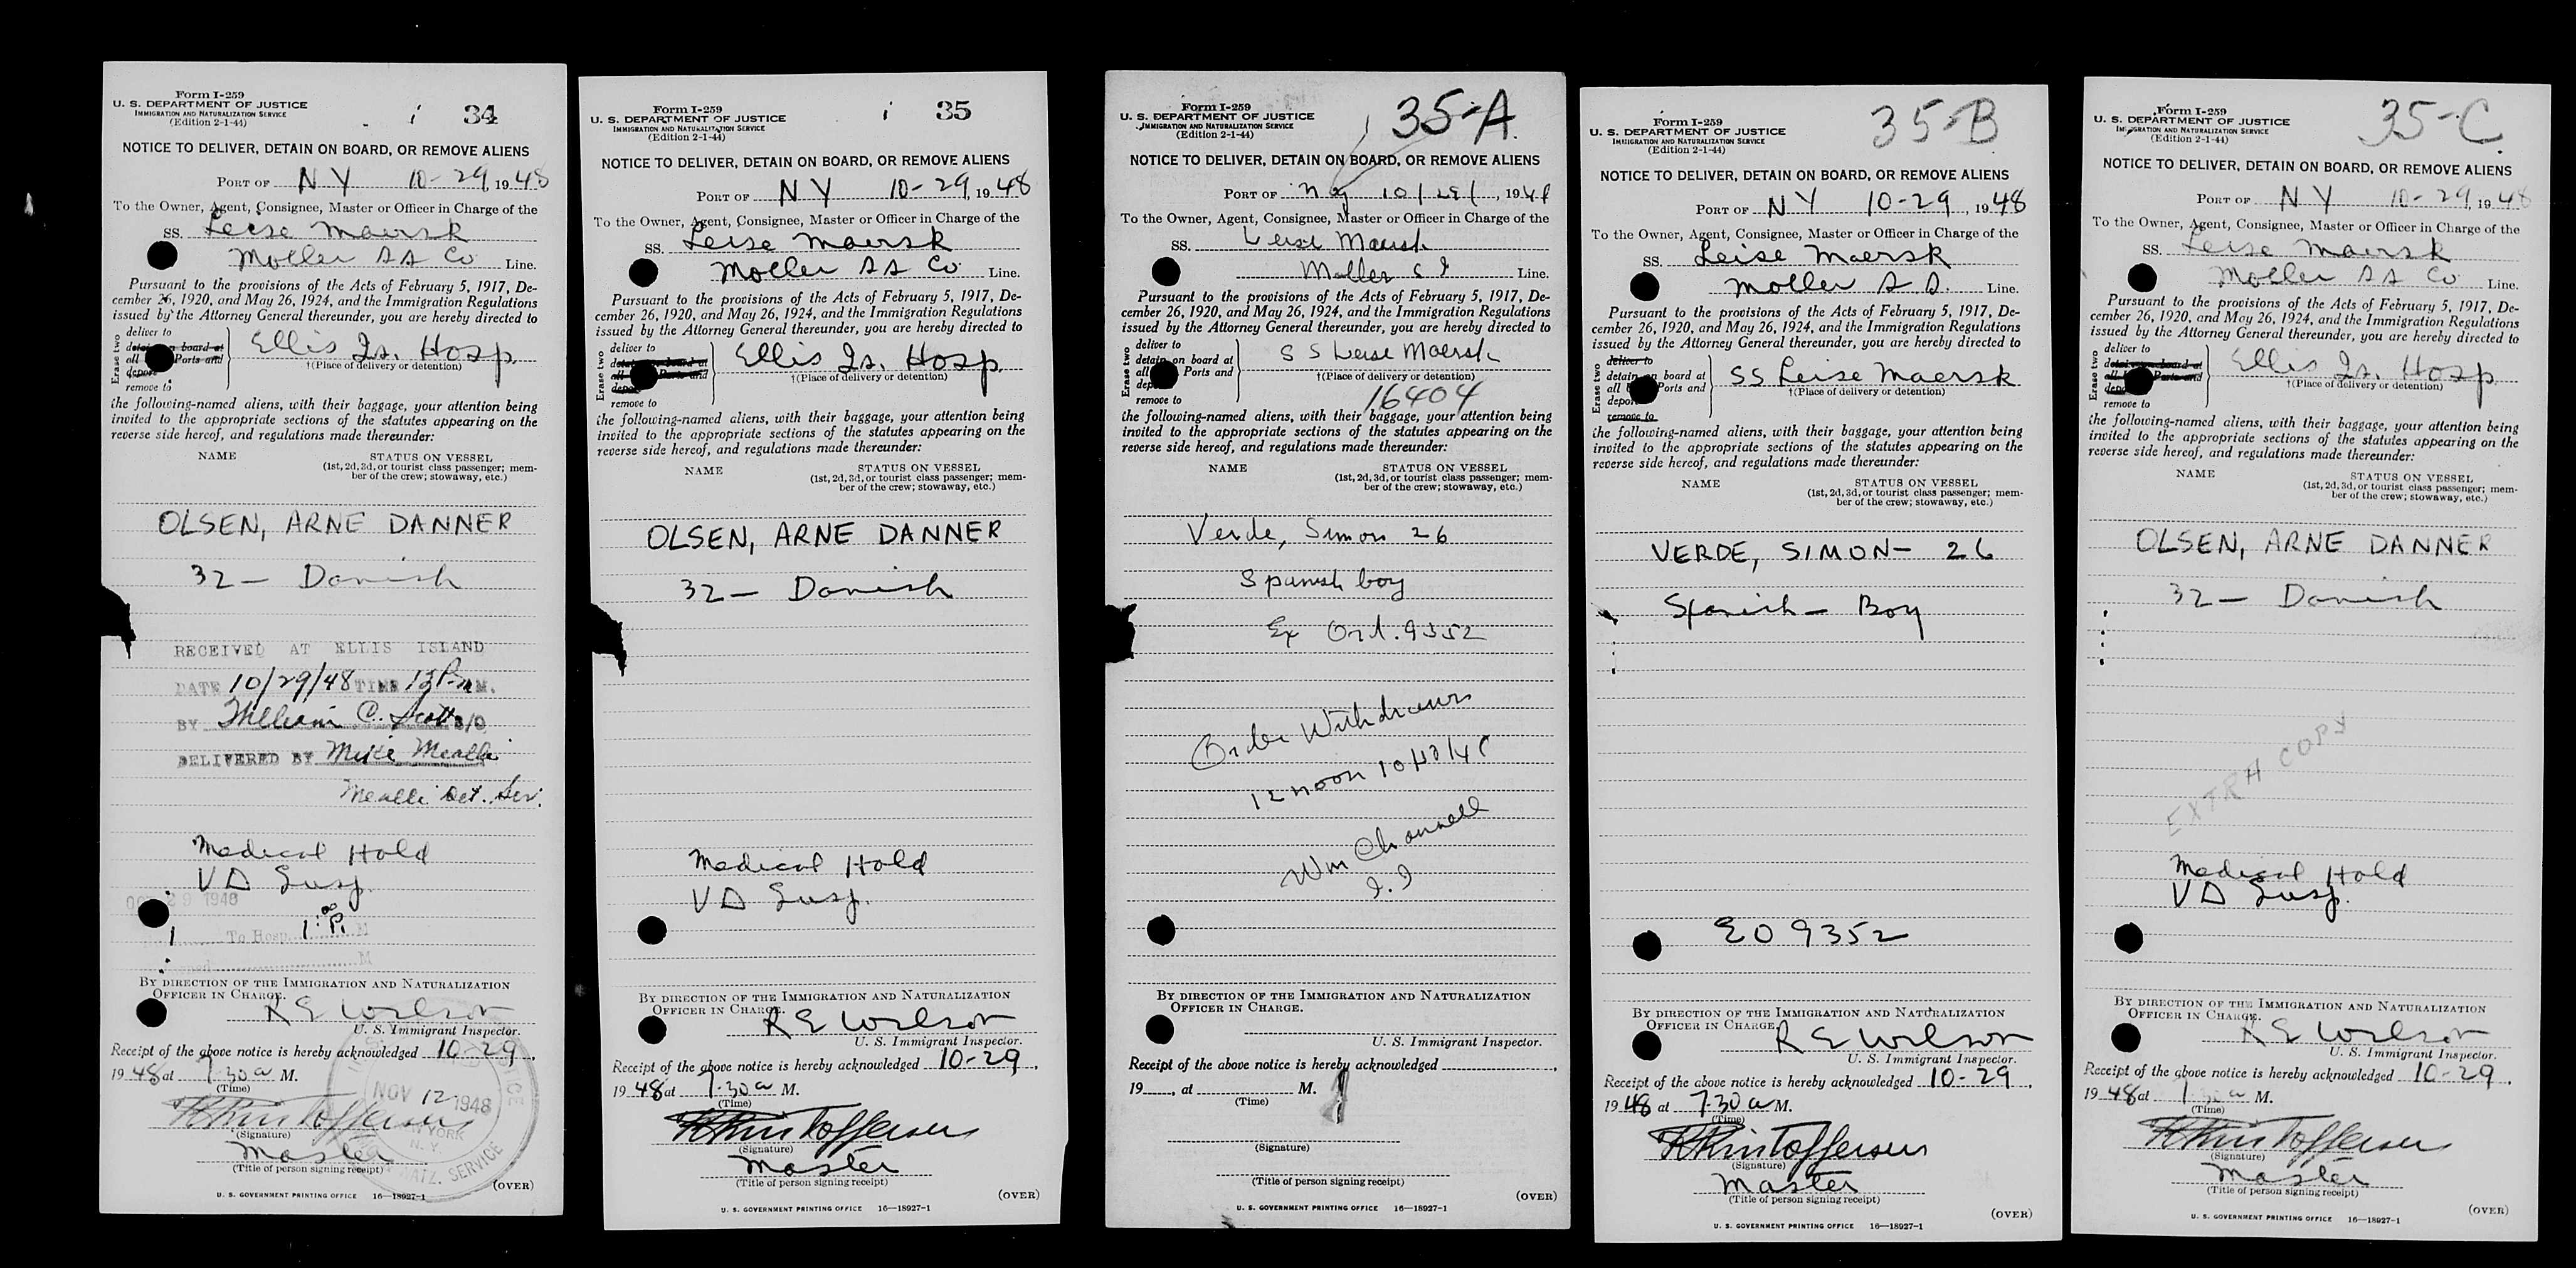 Form I-259
U. S. DEPARTMENT OF JUSTICE
IMMIGRATION AND NATURALIZATION SERVICE
(Edition 2-1-44)
i 34
NOTICE TO DELIVER, DETAIN ON BOARD, OR REMOVE ALIENS
PORT OF NY 10-29, 1948
To the Owner, Agent, Consignee, Master or Officer in Charge of the
SS. Leise Maersk
Moller SS Co Line.
Pursuant to the provisions of the Acts of February 5, 1917, De-
cember 26, 1920, and May 26, 1924, and the Immigration Regulations
issued by the Attorney General thereunder, you are hereby directed to
Erase two
deliver to
detain on board at
all Ports and
depor
remove to
Ellis Is. Hosp.
†(Place of delivery or detention)
the following-named aliens, with their baggage, your attention being
invited to the appropriate sections of the statutes appearing on the
reverse side hereof, and regulations made thereunder:
NAME STATUS ON VESSEL
(1st, 2d, 3d, or tourist class passenger; mem-
ber of the crew; stowaway, etc.)
OLSEN, ARNE DANNER
32 — Danish
RECEIVED AT ELLIS ISLAND
DATE 10/29/48 TIME M.
BY William C. Scott S/O
DELIVERED BY Mike Mealli
Mealli Det. Ser.
Medical Hold
VD Susp.
OCT 29 1948
1 To Hosp. 1:00 P. M
M
BY DIRECTION OF THE IMMIGRATION AND NATURALIZATION
OFFICER IN CHARGE.
R E Wilson
U. S. Immigrant Inspector.
Receipt of the above notice is hereby acknowledged 10-29,
1948 at 7.30 a M.
(Time)
NOV 12 1948
NEW YORK
N. Y.
NATZ. SERVICE
Kristoffersen
(Signature)
Master
(Title of person signing receipt)
(OVER)
U. S. GOVERNMENT PRINTING OFFICE 16—18927-1
Form I-259
U. S. DEPARTMENT OF JUSTICE
IMMIGRATION AND NATURALIZATION SERVICE
(Edition 2-1-44)
i 35
NOTICE TO DELIVER, DETAIN ON BOARD, OR REMOVE ALIENS
PORT OF NY 10-29, 1948
To the Owner, Agent, Consignee, Master or Officer in Charge of the
SS. Leise Maersk
Moller SS Co Line.
Pursuant to the provisions of the Acts of February 5, 1917, De-
cember 26, 1920, and May 26, 1924, and the Immigration Regulations
issued by the Attorney General thereunder, you are hereby directed to
Erase two
deliver to
detain on board at
all Ports and
depor
remove to
Ellis Is. Hosp
†(Place of delivery or detention)
the following-named aliens, with their baggage, your attention being
invited to the appropriate sections of the statutes appearing on the
reverse side hereof, and regulations made thereunder:
NAME STATUS ON VESSEL
(1st, 2d, 3d, or tourist class passenger; mem-
ber of the crew; stowaway, etc.)
OLSEN, ARNE DANNER
32 — Danish
Medical Hold
VD Susp.
BY DIRECTION OF THE IMMIGRATION AND NATURALIZATION
OFFICER IN CHARGE.
R E Wilson
U. S. Immigrant Inspector.
Receipt of the above notice is hereby acknowledged 10-29,
1948 at 7.30 a M.
(Time)
Kristoffersen
(Signature)
Master
(Title of person signing receipt)
(OVER)
U. S. GOVERNMENT PRINTING OFFICE 16—18927-1
Form I-259
U. S. DEPARTMENT OF JUSTICE
IMMIGRATION AND NATURALIZATION SERVICE
(Edition 2-1-44)
35-A.
NOTICE TO DELIVER, DETAIN ON BOARD, OR REMOVE ALIENS
PORT OF NY 10/29/, 1948
To the Owner, Agent, Consignee, Master or Officer in Charge of the
SS. Leise Maersk
Moller Line.
Pursuant to the provisions of the Acts of February 5, 1917, De-
cember 26, 1920, and May 26, 1924, and the Immigration Regulations
issued by the Attorney General thereunder, you are hereby directed to
Erase two
deliver to
detain on board at
all Ports and
dep
remove to
SS Leise Maersk
†(Place of delivery or detention)
16404
the following-named aliens, with their baggage, your attention being
invited to the appropriate sections of the statutes appearing on the
reverse side hereof, and regulations made thereunder:
NAME STATUS ON VESSEL
(1st, 2d, 3d, or tourist class passenger; mem-
ber of the crew; stowaway, etc.)
Verde, Simon 26
Spanish boy
Ex Ord. 9352
Order Withdrawn
12 noon
Wm Channell
I.I
BY DIRECTION OF THE IMMIGRATION AND NATURALIZATION
OFFICER IN CHARGE.
U. S. Immigrant Inspector.
Receipt of the above notice is hereby acknowledged
19 , at M.
(Time)
(Signature)
(Title of person signing receipt)
(OVER)
U. S. GOVERNMENT PRINTING OFFICE 16—18927-1
Form I-259
U. S. DEPARTMENT OF JUSTICE
IMMIGRATION AND NATURALIZATION SERVICE
(Edition 2-1-44)
35-B
NOTICE TO DELIVER, DETAIN ON BOARD, OR REMOVE ALIENS
PORT OF NY 10-29, 1948
To the Owner, Agent, Consignee, Master or Officer in Charge of the
SS. Leise Maersk
Moller S.S. Line.
Pursuant to the provisions of the Acts of February 5, 1917, De-
cember 26, 1920, and May 26, 1924, and the Immigration Regulations
issued by the Attorney General thereunder, you are hereby directed to
Erase two
deliver to
detain on board at
all Ports and
depor
remove to
SS Leise Maersk
†(Place of delivery or detention)
the following-named aliens, with their baggage, your attention being
invited to the appropriate sections of the statutes appearing on the
reverse side hereof, and regulations made thereunder:
NAME STATUS ON VESSEL
(1st, 2d, 3d, or tourist class passenger; mem-
ber of the crew; stowaway, etc.)
VERDE, SIMON — 26
Spanish — Boy
EO 9352
BY DIRECTION OF THE IMMIGRATION AND NATURALIZATION
OFFICER IN CHARGE.
R E Wilson
U. S. Immigrant Inspector.
Receipt of the above notice is hereby acknowledged 10-29,
1948 at 7.30 a M.
(Time)
Kristoffersen
(Signature)
Master
(Title of person signing receipt)
(OVER)
U. S. GOVERNMENT PRINTING OFFICE 16—18927-1
Form I-259
U. S. DEPARTMENT OF JUSTICE
IMMIGRATION AND NATURALIZATION SERVICE
(Edition 2-1-44)
35-C.
NOTICE TO DELIVER, DETAIN ON BOARD, OR REMOVE ALIENS
PORT OF NY 10-29, 1948
To the Owner, Agent, Consignee, Master or Officer in Charge of the
SS. Leise Maersk
Moller SS Co Line.
Pursuant to the provisions of the Acts of February 5, 1917, De-
cember 26, 1920, and May 26, 1924, and the Immigration Regulations
issued by the Attorney General thereunder, you are hereby directed to
Erase two
deliver to
detain on board at
all Ports and
depor
remove to
Ellis Is. Hosp
†(Place of delivery or detention)
the following-named aliens, with their baggage, your attention being
invited to the appropriate sections of the statutes appearing on the
reverse side hereof, and regulations made thereunder:
NAME STATUS ON VESSEL
(1st, 2d, 3d, or tourist class passenger; mem-
ber of the crew; stowaway, etc.)
OLSEN, ARNE DANNER
32 — Danish
EXTRA COPY
Medical Hold
VD Susp.
BY DIRECTION OF THE IMMIGRATION AND NATURALIZATION
OFFICER IN CHARGE.
R E Wilson
U. S. Immigrant Inspector.
Receipt of the above notice is hereby acknowledged 10-29,
1948 at 7.30 a M.
(Time)
Kristoffersen
(Signature)
Master
(Title of person signing receipt)
(OVER)
U. S. GOVERNMENT PRINTING OFFICE 16—18927-1